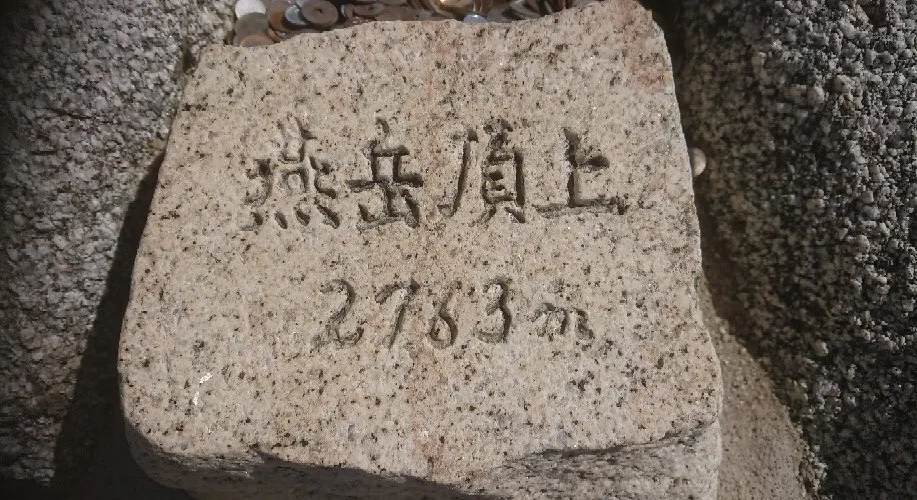 燕岳頂上
2763m